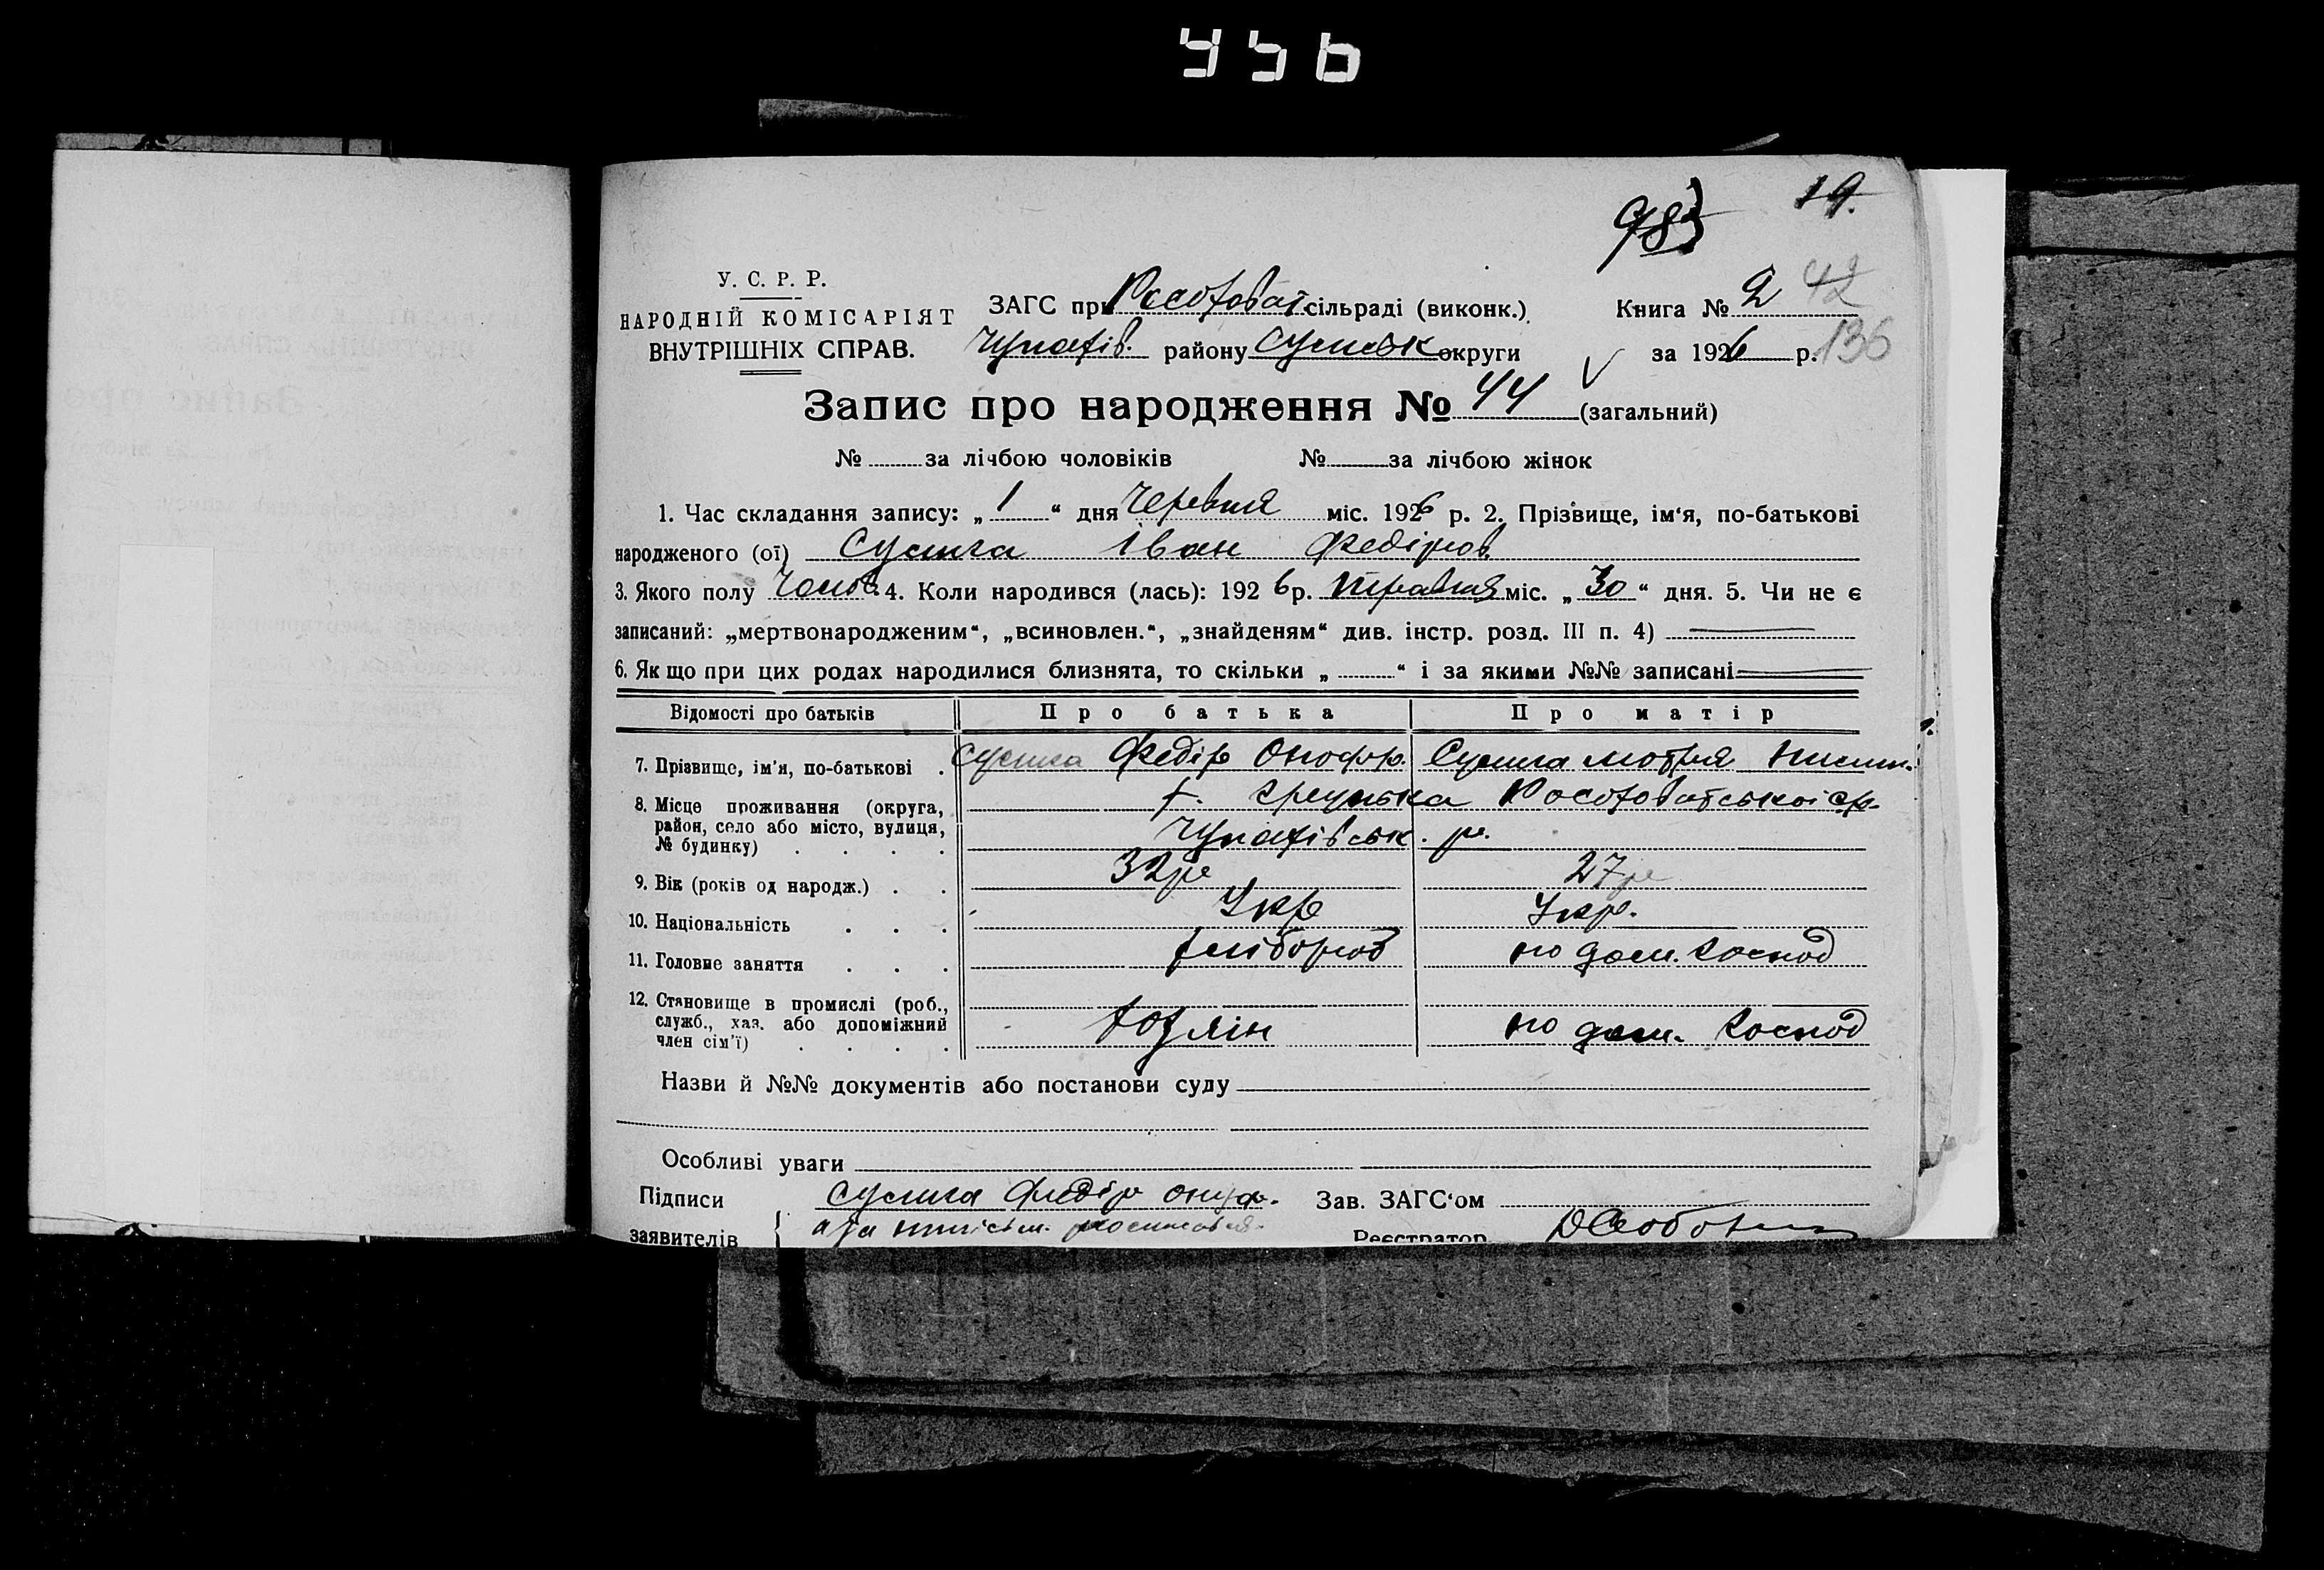 956
19.
983
У. С. Р. Р.
НАРОДНІЙ КОМІСАРІЯТ
ВНУТРІШНІХ СПРАВ.
ЗАГС при Росоховат. сільраді (виконк.)
Чупахів. району Сумськ округи
Книга № 2 42
за 1926 р. 136
Запис про народження № 44 (загальний)
№ за лічбою чоловіків № за лічбою жінок
1. Час складання запису: „ 1 “ дня Червня міс. 1926 р. 2. Прізвище, ім‘я, по-батькові
народженого (ої) Сушга Іван Федіров.
3. Якого полу Чолов. 4. Коли народився (лась): 1926 р. травня міс. „ 30 “ дня. 5. Чи не є
записаний: „мертвонародженим“, „всиновлен.“, „знайденям“ див. інстр. розд. III п. 4)
6. Як що при цих родах народилися близнята, то скільки „ “ і за якими №№ записані
Відомості про батьків Про батька Про матір
7. Прізвище, ім'я, по-батькові . Федір Онофр. Мотря
8. Місце проживання (округа, х. Росоховатської с/р.
район, село або місто, вулиця, Чупахівськ. р.
№ будинку) . . . .
9. Вік (років од народж.) . . 32 р 27 р
10. Національність . . . Укр Укр.
11. Головне заняття . . . хлібороб по дом. господ
12. Становище в промислі (роб.,
служб., хаз. або допоміжний хазяїн по дом. господ
член сім'ї) . . . .
Назви й №№ документів або постанови суду
Особливі уваги
Підписи Федір Зав. ЗАГС‘ом
заявителів { Реєстратор